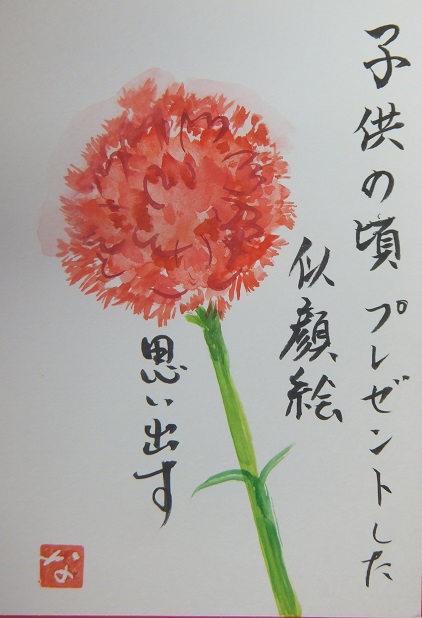 子供の頃プレゼントした
似顔絵
思い出す
な